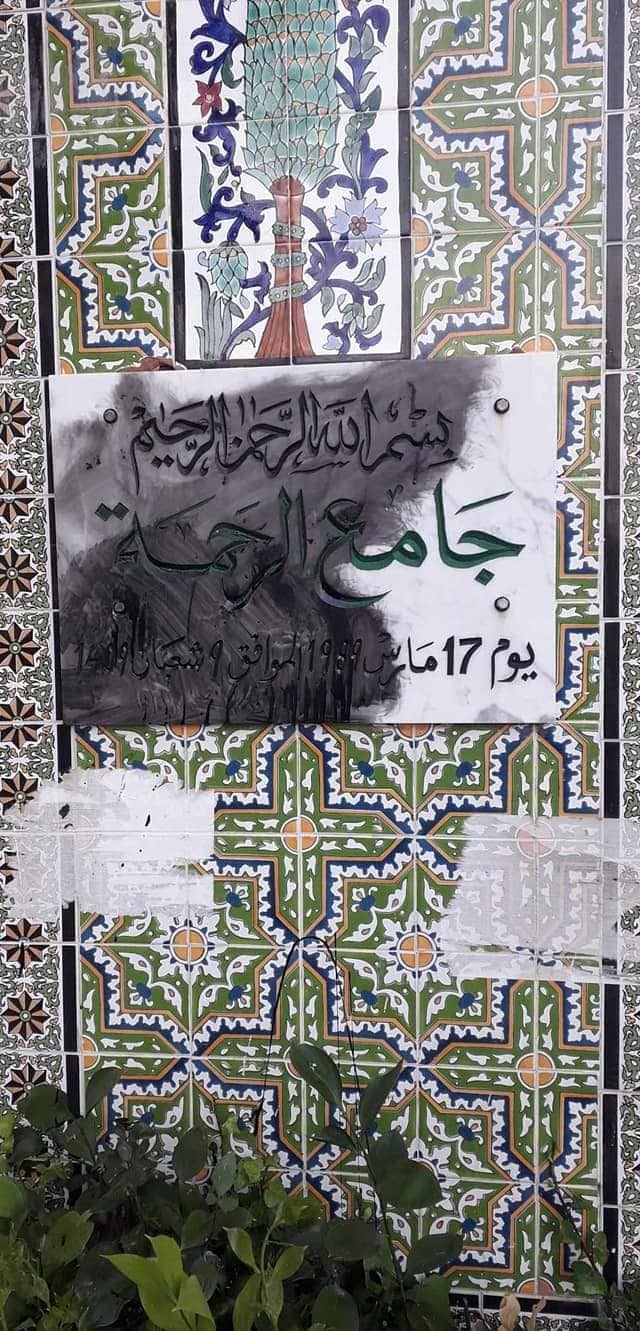 بِسْمِ اللَّهِ الرَّحْمَٰنِ الرَّحِيمِ
جَامع الرحمَة
يوم 17 مَارس 1989 الموافق 9 شعبان 1409